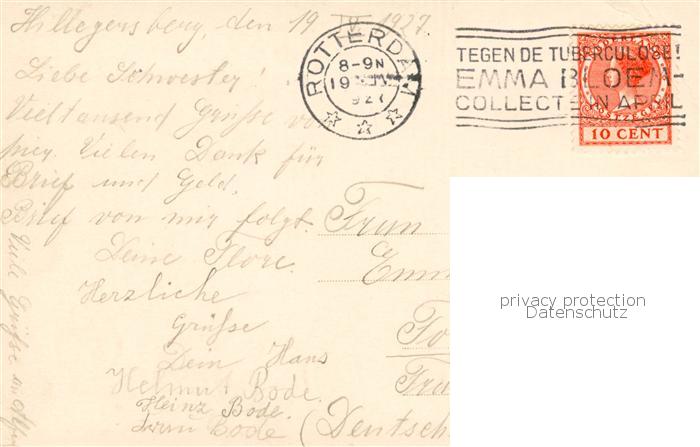 Hillegersberg, den 19 IV 1927
Liebe Schwester!
Vieltausend Grüsse von
hier. Vielen Dank für
Brief und Geld.
Brief von mir folgt.
Deine Flore.
Herzliche
Grüsse
Dein Hans
Helmut Bode.
Heinz Bode.
Bode
Viele Grüsse an
ROTTERDAM
8-9N
19
1927
TEGEN DE TUBERCULOSE!
EMMA BLOEM-
COLLECTE IN APRIL
10 CENT
Frau
Emm
(Deutsch
privacy protection
Datenschutz